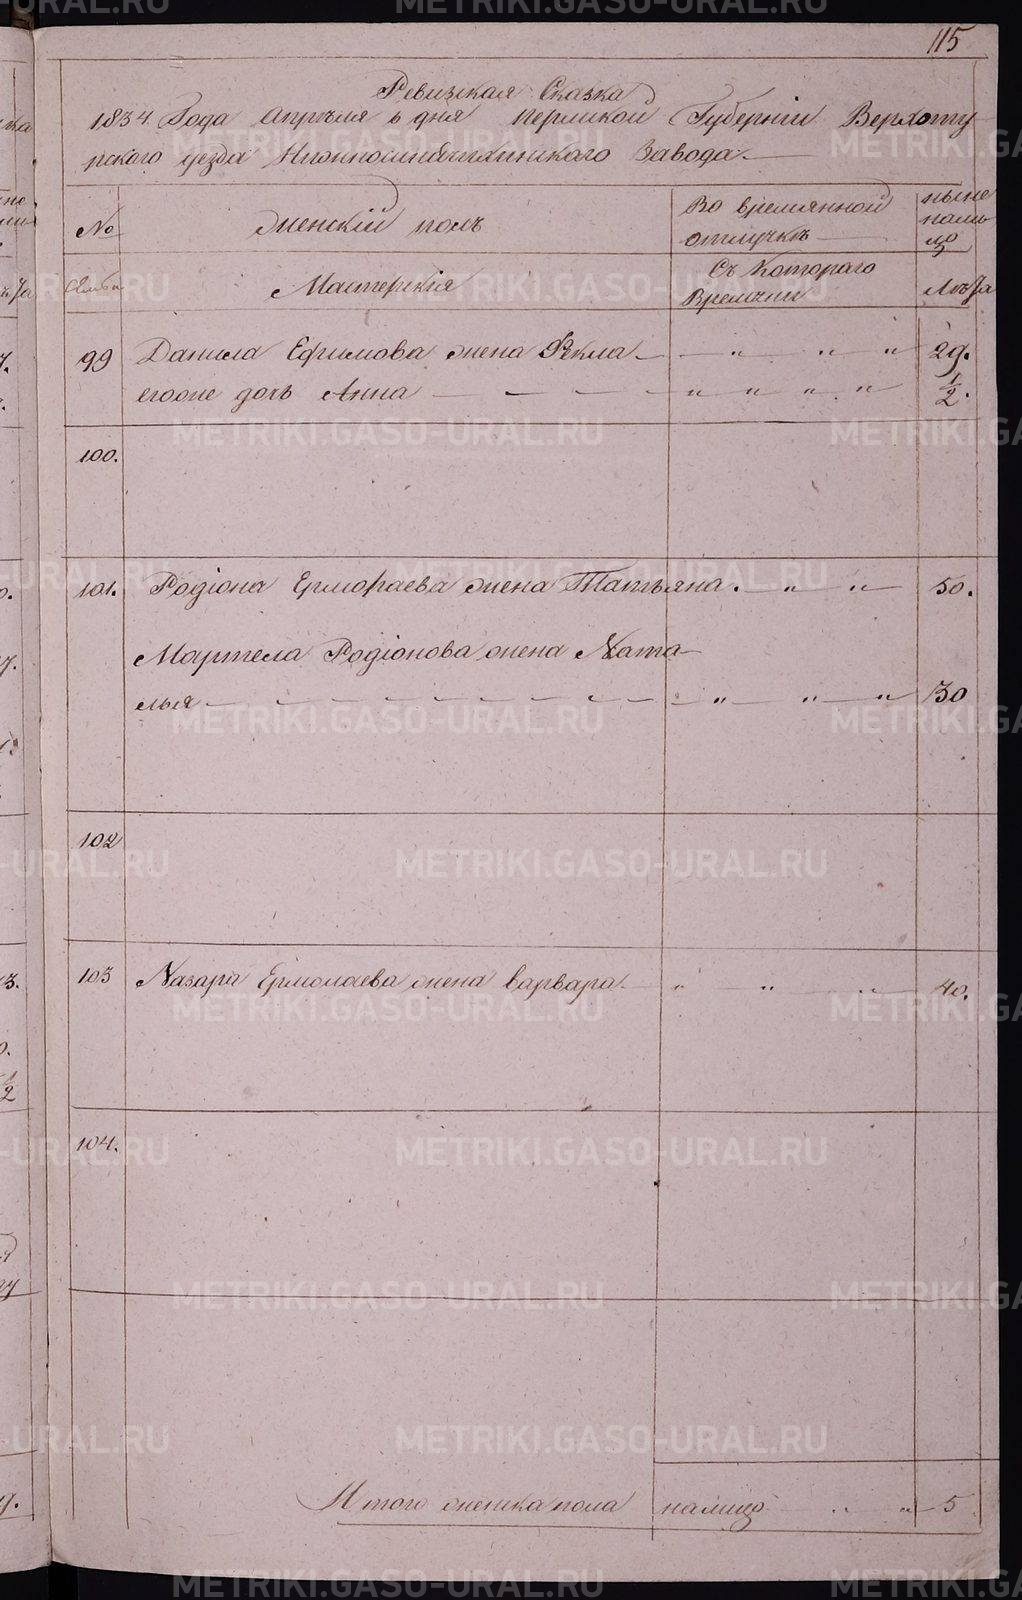 115
Ревизская Сказка
1834 Года Апреля 6 дня Пермской Губернии Верхоту
рского уезда Завода
№
Женскій полъ
Во времянной
отлучкѣ
ныне
нали
цо
Семьи
Мастерскія
Съ Котораго
Времѣни
Лѣта
99 Данила Ефимова жена Фекла — „ „ „ 29.
егоже дочь Анна — — — — „ „ „ „ 1/2.
100.
101. Родіона Ермолаева жена Татьяна. — „ „ — 50.
Родіонова жена Ната
лья — — — — — — — — „ „ „ 30
102
103 Назара Ермолаева жена варвара — „ „ „ 40.
104.
Итого женска пола налицо „ „ 5
METRIKI.GASO-URAL.RU